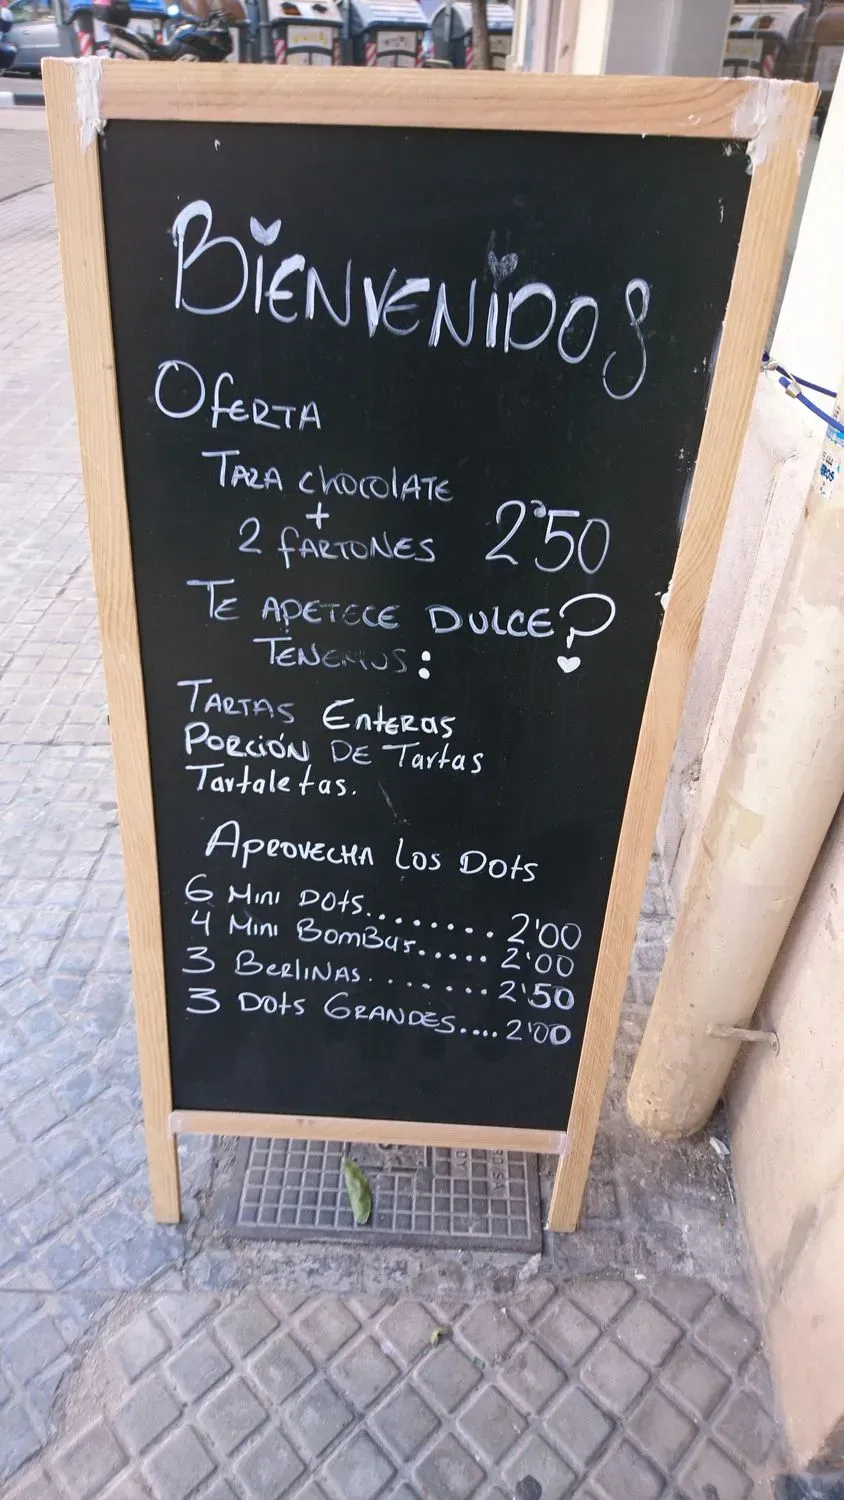 BIENVENIDOS
OFERTA
TAZA CHOCOLATE
+
2 FARTONES 2'50
TE APETECE DULCE?
TENEMOS:
TARTAS ENTERAS
PORCIÓN DE TARTAS
Tartaletas.
APROVECHA LOS DOTS
6 MINI DOTS........ 2'00
4 MINI BOMBAS..... 2'00
3 BERLINAS....... 2'50
3 DOTS GRANDES.... 2'00